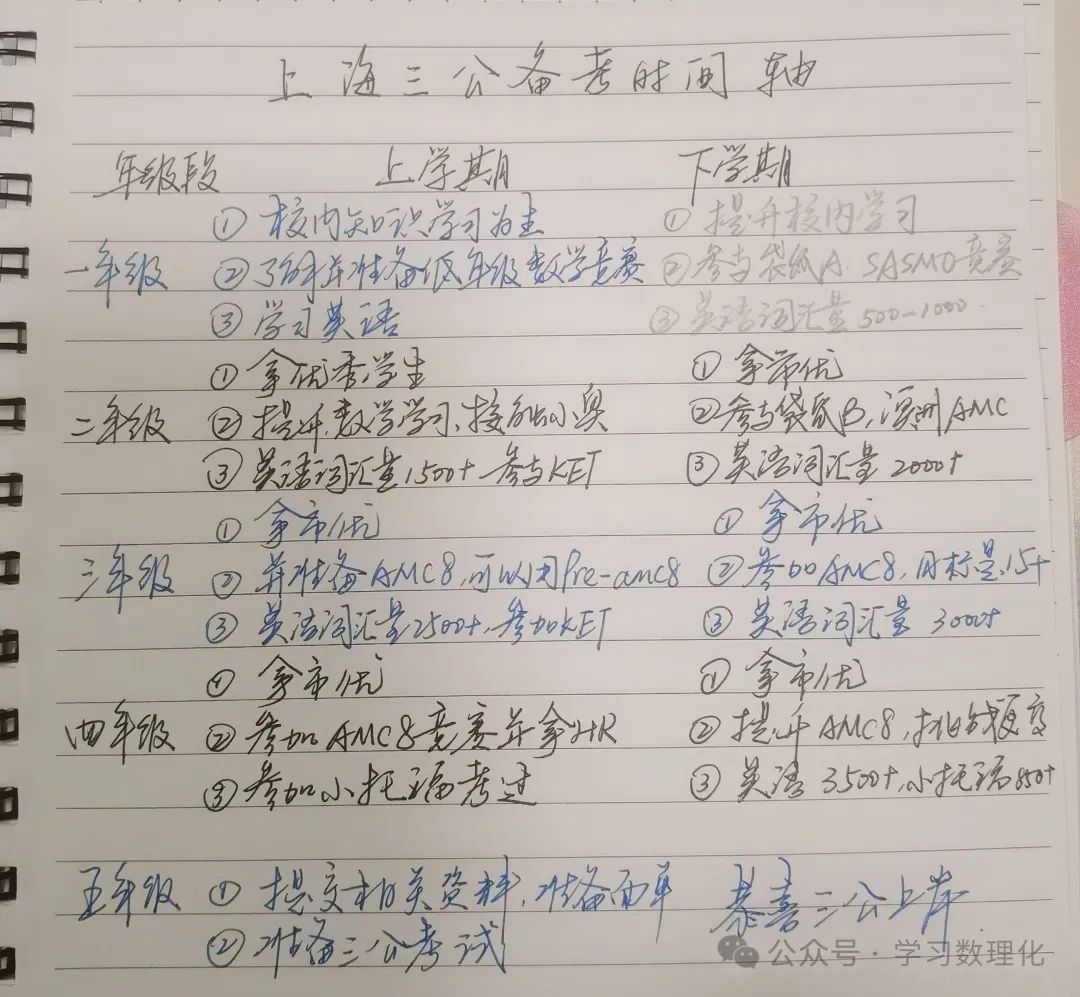 上海三公备考时间轴
年级段 上学期 下学期
① 校内知识学习为主 ① 提升校内学习
一年级 ② 了解并准备低年级数学竞赛 ② 参与袋鼠A. SASMO竞赛
③ 学习英语 ③ 英语词汇量 500-1000.
① 拿优秀学生 ① 拿市优
二年级 ② 提升数学学习、接触小奥 ② 参与袋鼠B, 澳洲AMC
③ 英语词汇量1500+ 参与KET ③ 英语词汇量 2000+
① 拿市优 ① 拿市优
三年级 ② 并准备AMC8,可以用Pre-amc8 ② 参加AMC8, 目标是15+
③ 英语词汇量2500+, 参加KET ③ 英语词汇量 3000+
① 拿市优 ① 拿市优
四年级 ② 参加AMC8竞赛并拿HR ② 提升AMC8, 挑战
③ 参加小托福考过 ③ 英语 3500+, 小托福850+
五年级 ① 提交相关资料, 准备面单 恭喜三公上岸
② 准备三公考试
公众号·学习数理化